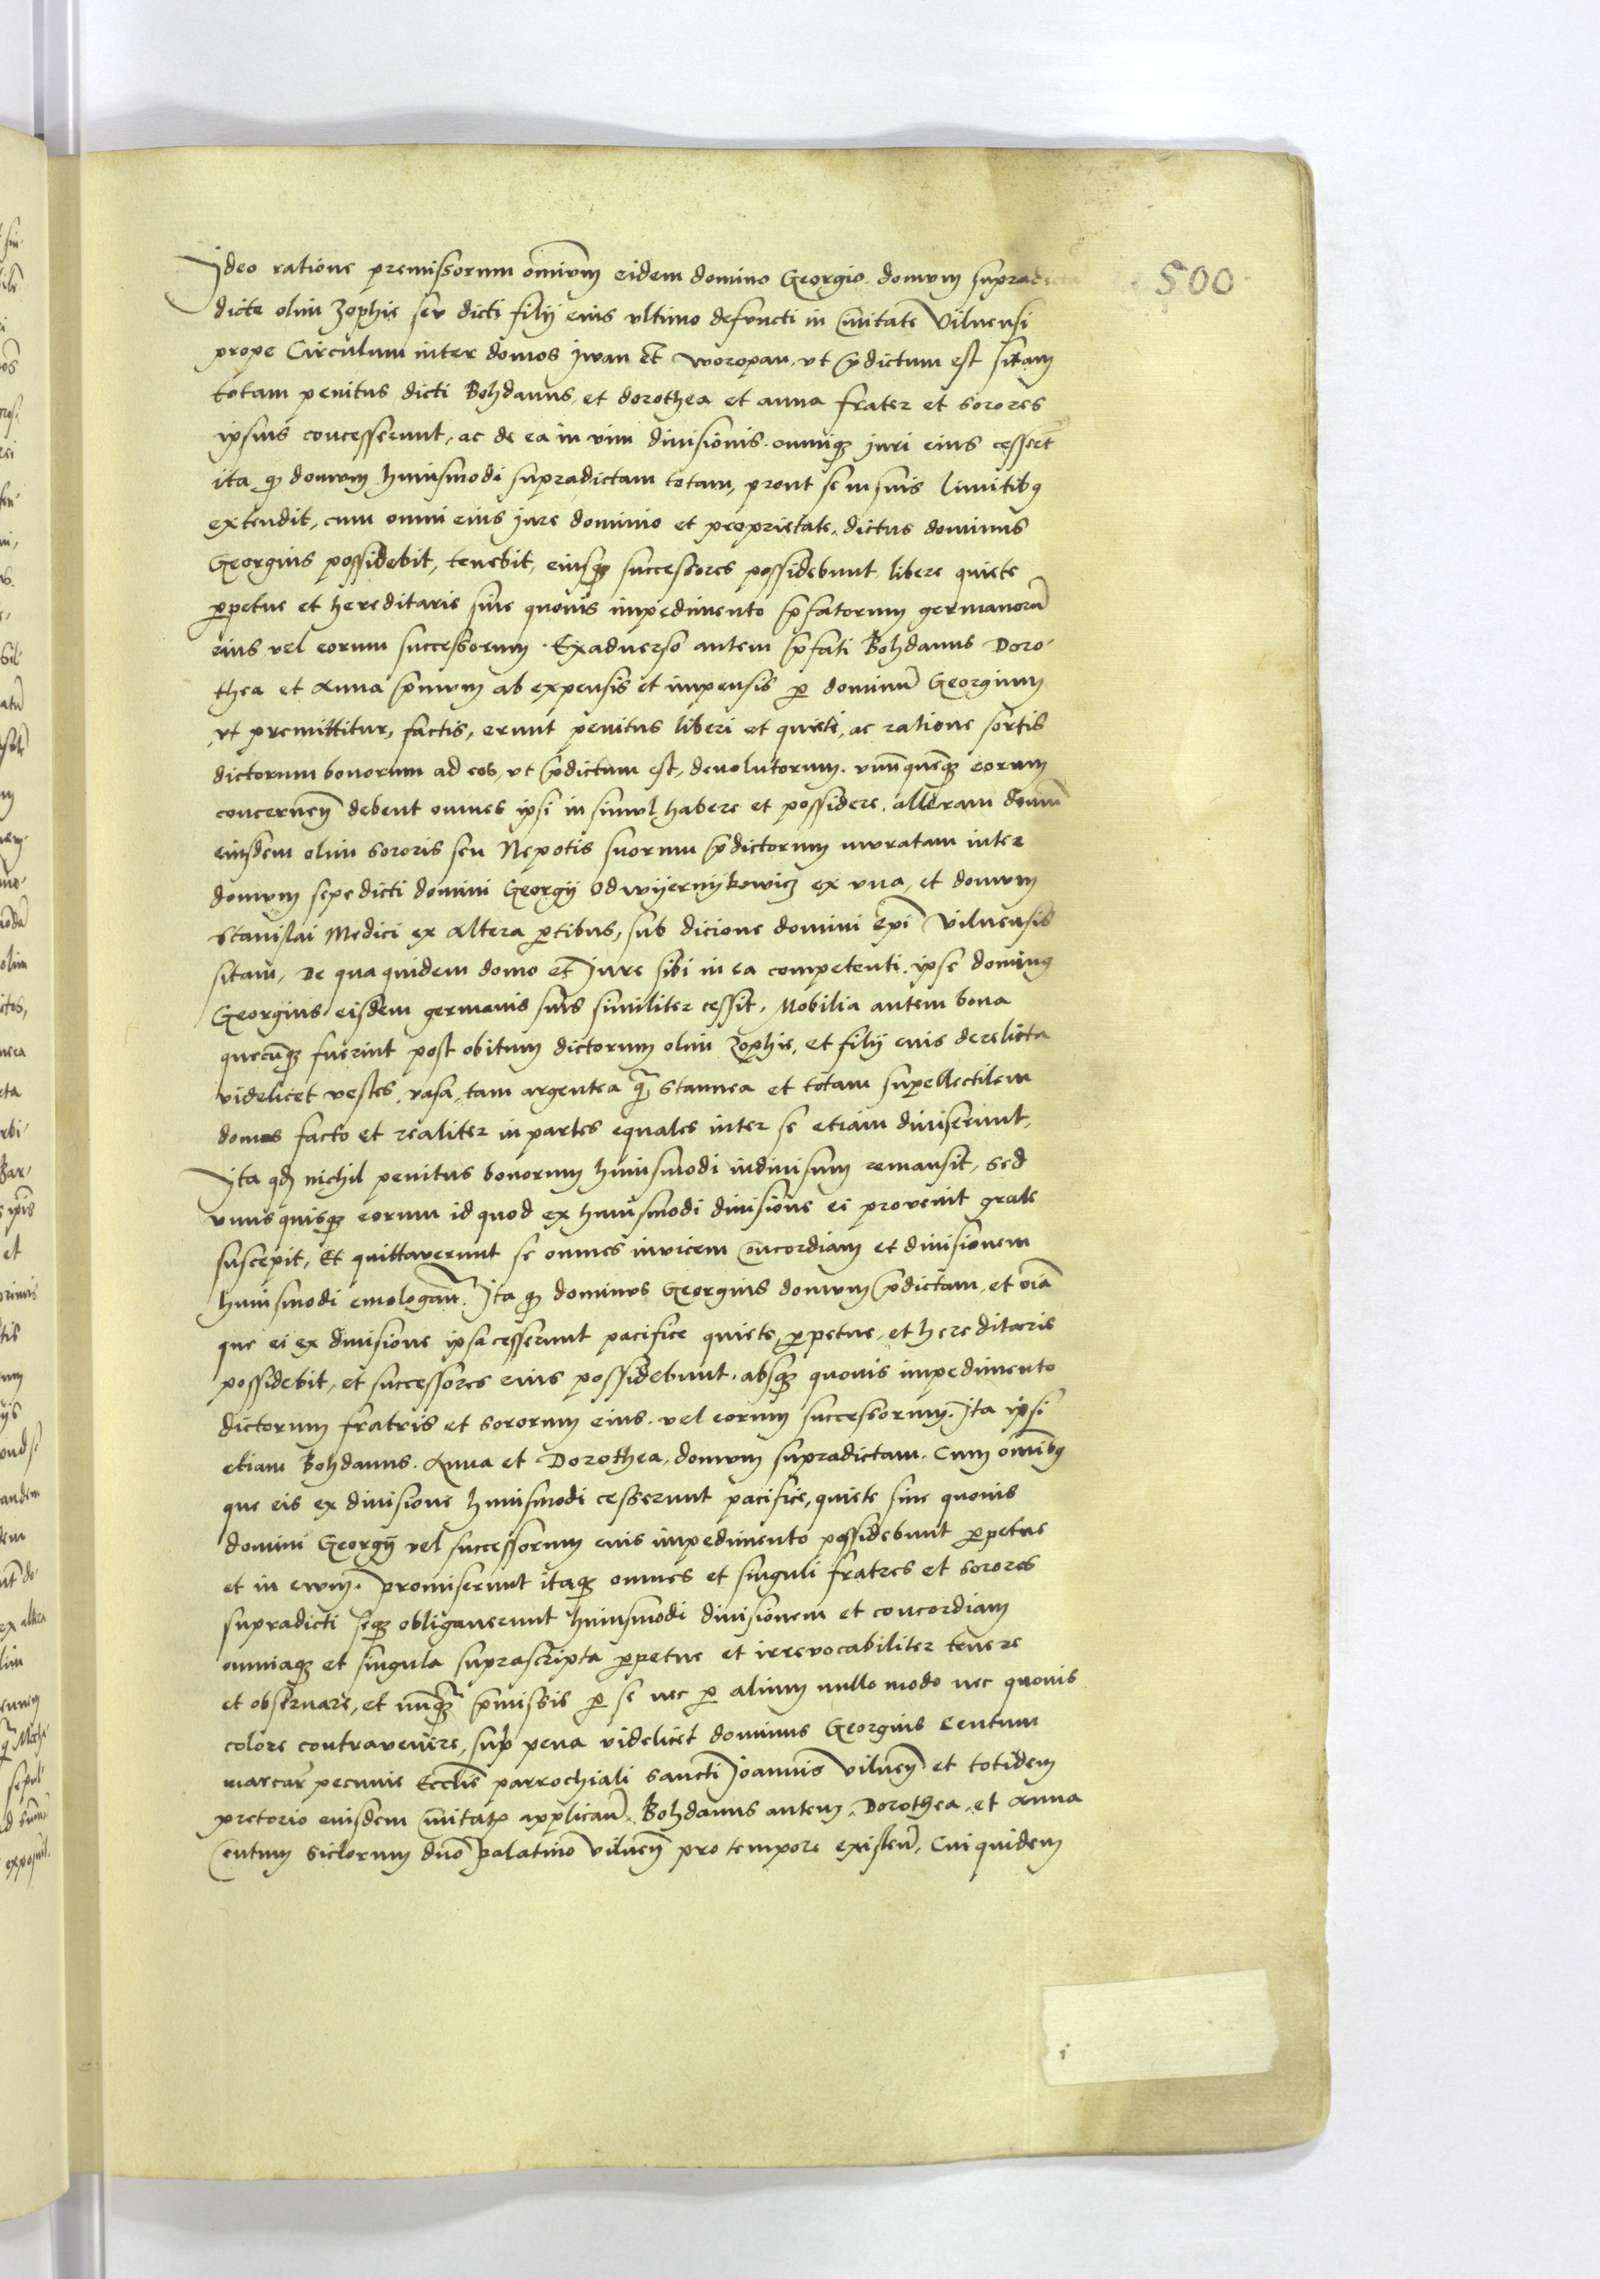 500
Ideo ratione premissorum omniũm eidem domino Georgio domum supradicta
dicte olim Zophie seu dicti filij eius ultimo defuncti in Civitate Vilnensi
prope Circulum inter domos Iwan et woropan, ut p̃dictum est sitam
totam penitus dicti Bohdanus, et dorothea et anna frater et sorores
ipsius concesserunt, ac de ea in vim divisionis omniq3 juri eius cesserũt
ita q3 domum huiusmodi supradictam totam, prout se in suis limitibꝰ
extendit, cum omni eius jure dominio et proprietate, dictus dominus
Georgius possidebit, tenebit, eiusq3 successores possidebunt libere quiete
ꝑpetue et hereditarie sine quovis impedimento p̃fatorum germanorũ
eius vel eorum successorum. Exadverso autem p̃fati Bohdanus Doro-
thea et Anna p̃nium ab expensis et impensis ꝑ dominũ Georgium
ut premittitur, factis, erunt penitus liberi et quieti, ac ratione sortis
dictorum bonorum ad eos, ut p̃dictum est, devolutorum. unũquẽq3 eorum
concernen̄ debent omnes ipsi in simul habere et possidere, alteram domũ
eiusdem olim sororis seu Nepotis suorum p̃dictorum muratam inter
domum sepe dicti domini Georgij Odwyernykowicz ex una, et domum
Stanislai Medici ex altera ꝑtibus, sub dicione domini Ep̃i Vilnensis
sitam, De qua quidem domo et Iure sibi in ea competenti, ipse dominꝰ
Georgius eisdem germanis suis similiter cessit, Mobilia autem bona
quecũq3 fuerint post obitum dictorum olim Zophie, et filij eius derelicta
videlicet vestes, vasa, tam argentea q̃ stannea et totam supellectilem
domus facto et realiter in partes equales inter se etiam diviserunt,
Ita qđ nichil penitus bonorum huiusmodi indivisum remansit, sed
unusquisq3 eorum id quod ex huiusmodi divisione ei provenit grate
suscepit, Et quittaverunt se omnes invicem Concordiam et divisionem
huiusmodi emologan̄. Ita q3 dominus Georgius domum p̃dictam, et oĩa
que ei ex divisione ipsa cesserunt pacifice quiete, ꝑpetue, et hereditarie
possidebit, et successores eius possidebunt, absq3 quovis impedimento
dictorum fratris et sororum eius, vel eorum successorum. Ita ipsi
etiam Bohdanus, Anna et Dorothea, domum supradictam, Cum om̃ibꝰ
que eis ex divisione huiusmodi cesserunt pacifice, quiete sine quovis
domini Georgij vel successorum eius impedimento possidebunt ꝑpetue
et in evum. Promiserunt itaq3 omnes et singuli fratres et sorores
supradicti seq3 obligaverunt huiusmodi divisionem et concordiam
omniaq3 et singula suprascripta ꝑpetue et irrevocabiliter tenere
et observare, et nunq3 p̃missis ꝑ se nec ꝑ alium nullo modo nec quovis
colore contravenire, sub pena videlicet dominus Georgius Centum
marcar̃ pecunie Eccl̃ie parrochiali Sancti Ioannis Vilnen̄ et totidem
pretorio eiusdem Civitatꝭ applican̄. Bohdanus autem, Dorothea, et Anna
Centum siclorum dño palatino vilnen̄ pro tempore existen̄, Cui quidem